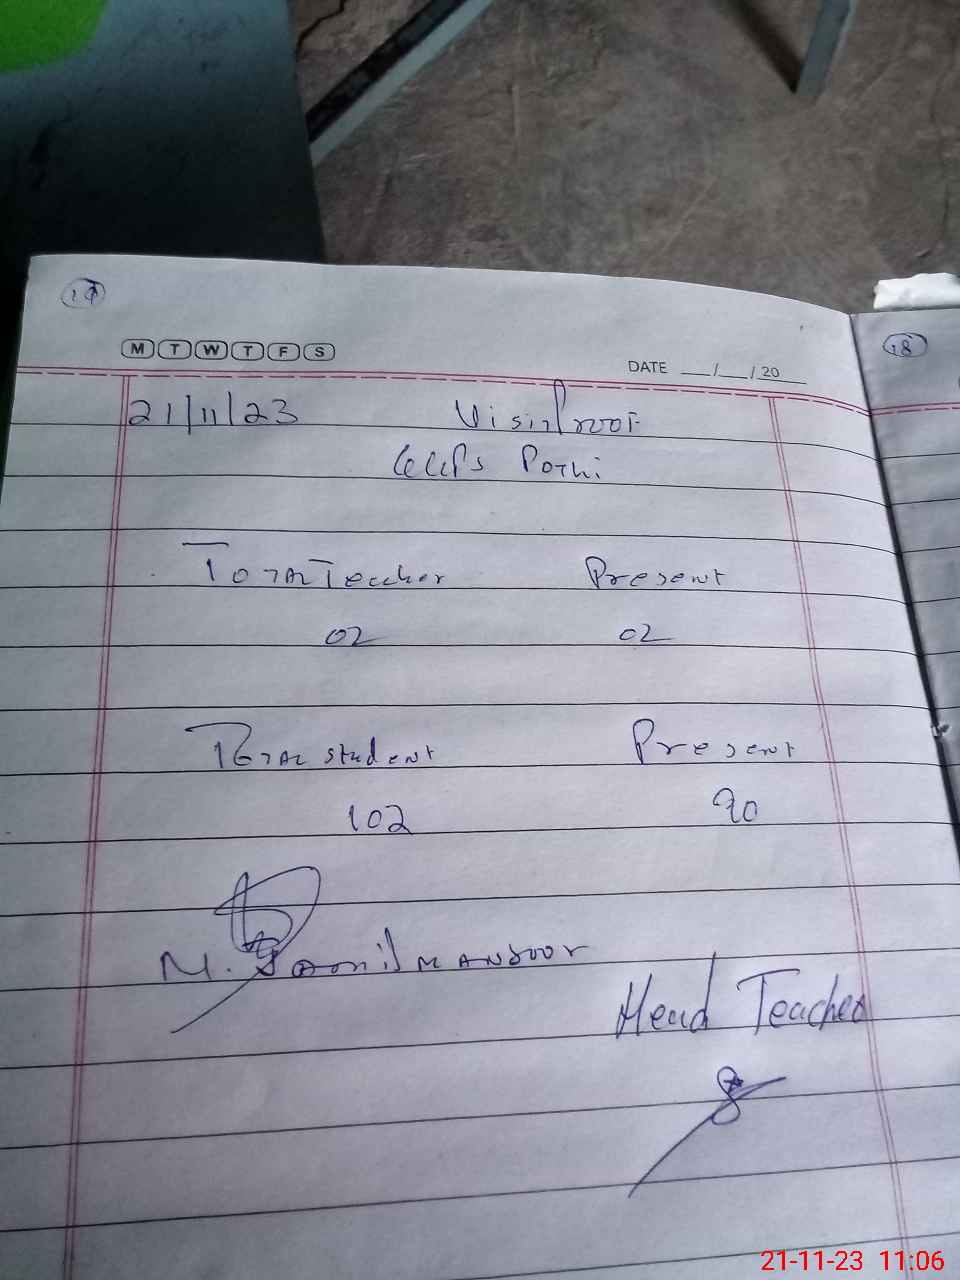 17
18
M T W T F S
DATE __/__/20
21/11/23 Visit Proof
GGPS Pothi
Total Teacher Present
02 02
Total student Present
102 90
M. Jamil Mansoor
Head Teacher
21-11-23 11:06